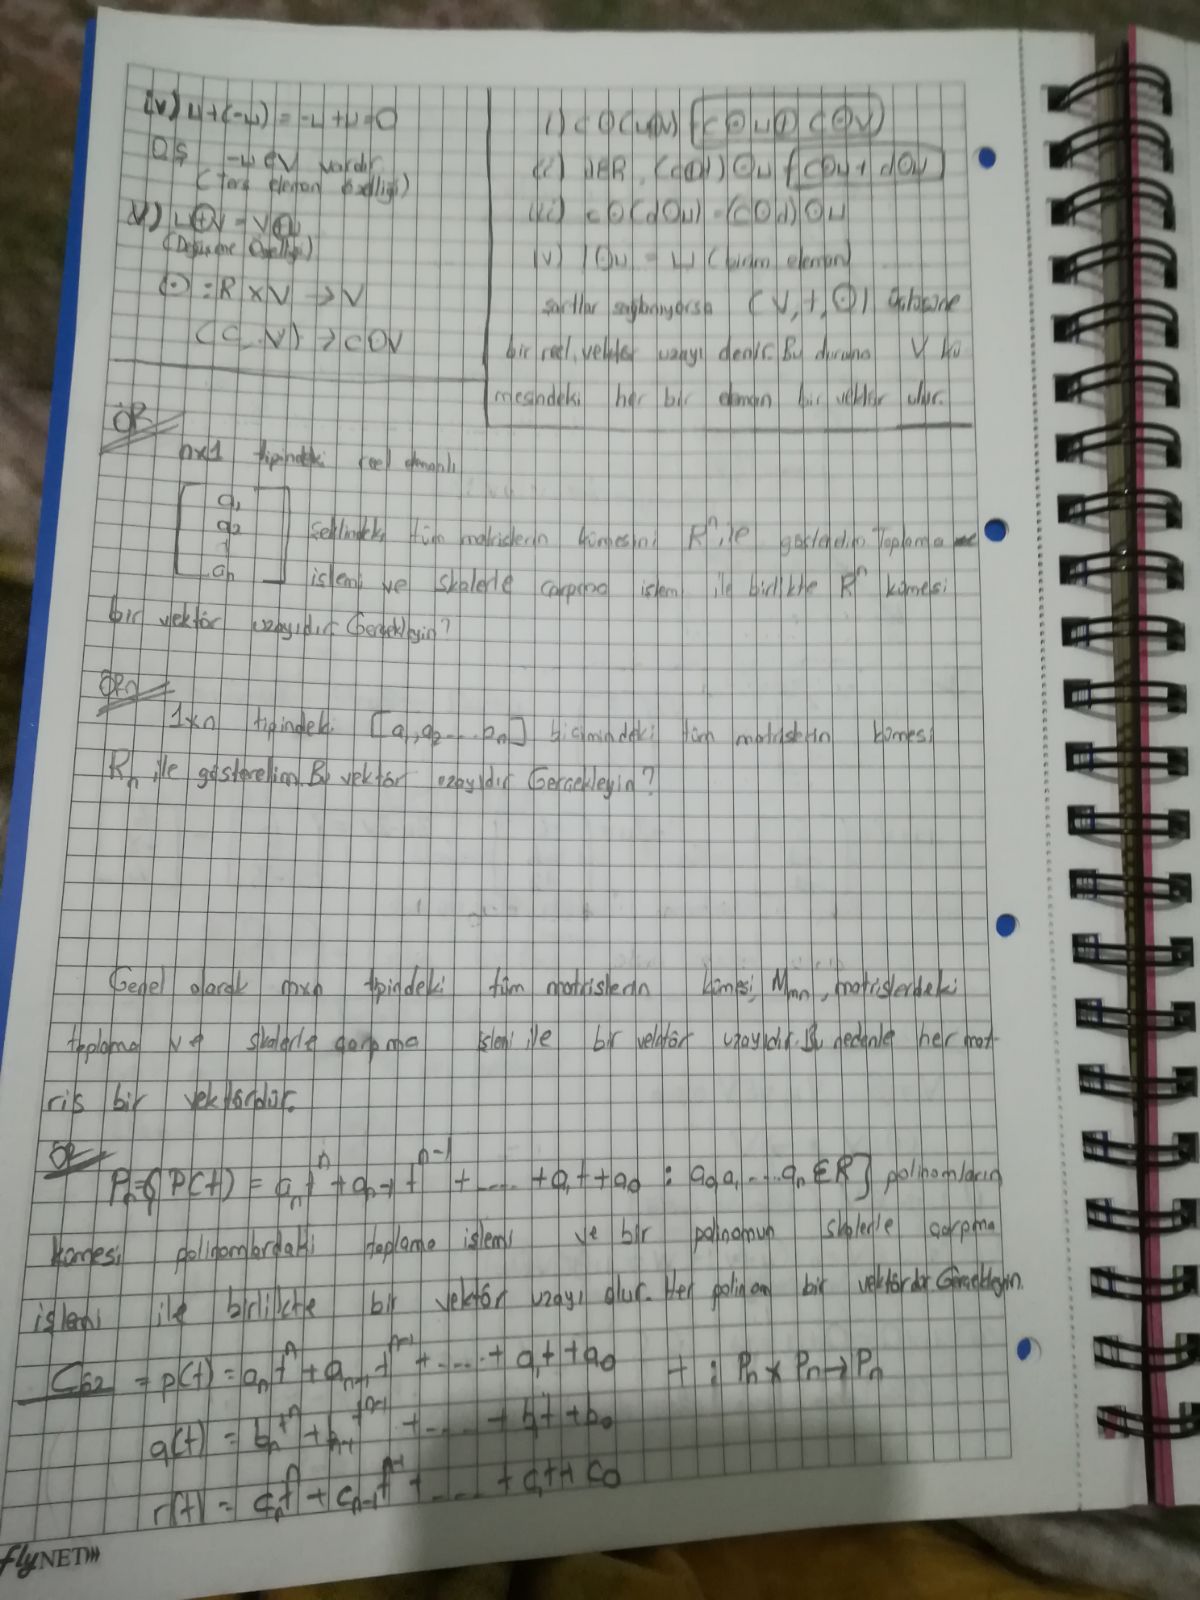 iv) u+(-u) = -u+u=0
-u ∈V vardır
(Ters eleman özelliği)
v) u⊕v = v⊕u
(Değişme Özelliği)
⊙ : R x V → V
(c, v) → c⊙v
i) c⊙(u⊕v) = c⊙u ⊕ c⊙v
ii) d∈R, (c⊕d)⊙u = c⊙u + d⊙u
iii) c⊙(d⊙u) = (c⊙d)⊙u
iv) 1⊙u = u (birim eleman)
şartlar sağlanıyorsa (V, +, ⊙)
bir reel vektör uzayı denir. Bu durumda V kü
mesindeki her bir eleman bir vektör olur.
ÖR
nx1 tipindeki reel elemanlı
a₁
a₂
aₙ
şeklindeki tüm matrislerin kümesini Rⁿ ile gösterelim. Toplama
işlemi ve skalerle çarpma işlemi ile birlikte Rⁿ kümesi
bir vektör uzayıdır Gerçekleyin?
ÖRn
1xn tipindeki [a₁, a₂ ... aₙ] biçimindeki tüm matrislerin kümesi
Rₙ ile gösterelim. Bu vektör uzayıdır Gerçekleyin?
Genel olarak mxn tipindeki tüm matrislerin kümesi, Mmn, matrislerdeki
toplama ve skalerle çarpma işlemi ile bir vektör uzayıdır. Bu nedenle her mat-
ris bir vektördür.
ÖR
Pₙ={P(t) = aₙtⁿ + aₙ₋₁tⁿ⁻¹ + .... + a₁t + a₀ : a₀,a₁...aₙ ∈R} polinomların
kümesi polinomlardaki toplama işlemi ve bir polinomun skalerle çarpma
işlemi ile birlikte bir vektör uzayı olur. Her polinom bir vektördür Gerçekleyin.
Çöz = p(t) = aₙtⁿ + aₙ₋₁tⁿ⁻¹ + .... + a₁t + a₀ + : Pₙ x Pₙ → Pₙ
q(t) = bₙtⁿ + bₙ₋₁tⁿ⁻¹ + .... + b₁t + b₀
r(t) = cₙtⁿ + cₙ₋₁tⁿ⁻¹ + .... + c₁t + c₀
flyNET